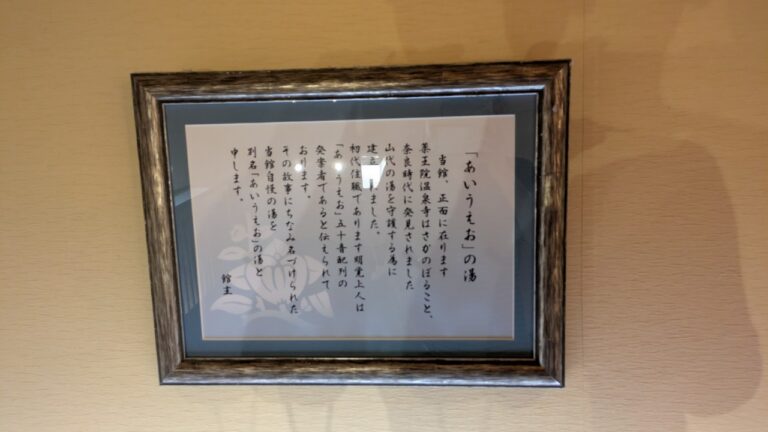 「あいうえお」の湯
当館、正面に在ります
薬王院温泉寺はさかのぼること、
奈良時代に発見されました
山代の湯を守護する為に
建立されました。
初代住職であります明覚上人は
「あいうえお」五十音配列の
発案者であると伝えられて
おります。
その故事にちなみ名づけられた
当館自慢の湯を
別名「あいうえお」の湯と
申します。
館主